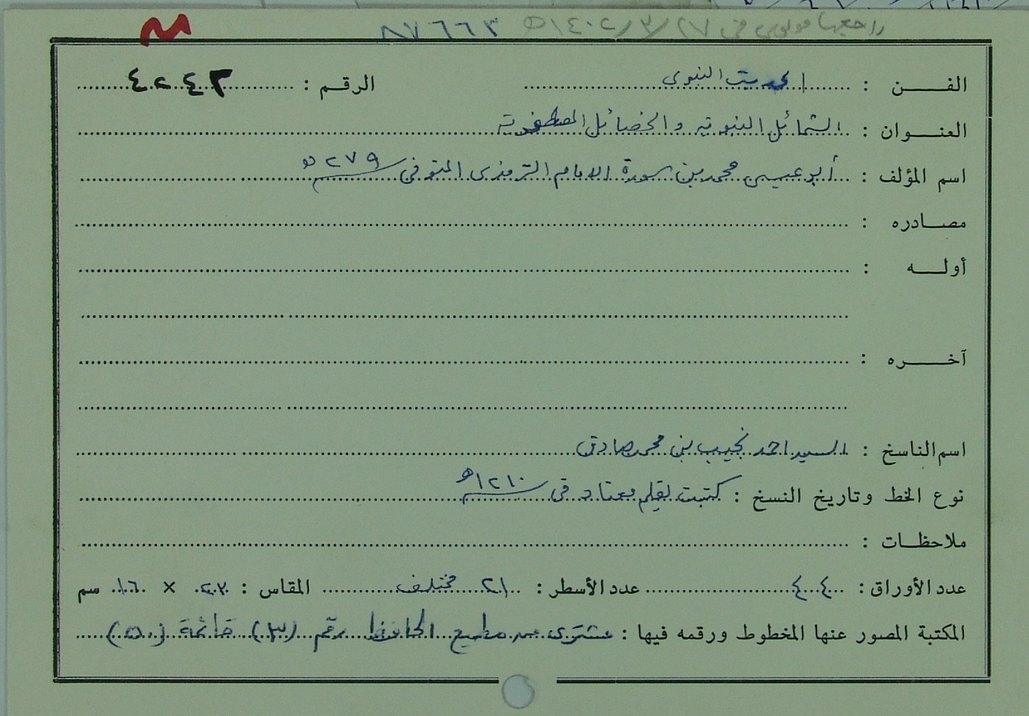 راجعها مولوي في ٢٧/٣/١٤٠٢ه ٨٧٦٦٣
الفـــن : الحديث النبوى الرقم : ٤٢٤٣
العنـوان : الشمائل النبوية والخصائل المصطفوية
اسم المؤلف : أبو عيسى محمد بن سورة الامام الترمذى المتوفى ٢٧٩ ه
مصـادره :
أولـــه :
آخـــره :
اسم الناسخ : السيد احمد نجيب بن محمد صادق
نوع الخط وتاريخ النسخ : كتبت بقلم معتاد فى ١٢١٠ه
ملاحظـات :
عدد الأوراق : ٤٠٤ عدد الأسطر : ٢١ مختلف المقاس : × ١٦ سم
المكتبة المصور عنها المخطوط ورقمه فيها : مشترى من مطيع الحافظ رقم (٣) قائمة (٥٠)